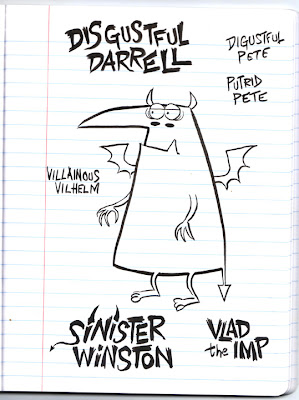 DISGUSTFUL
DARRELL
DIGUSTFUL
PETE
PUTRID
PETE
VILLAINOUS
VILHELM
SINISTER
WINSTON
VLAD
the IMP